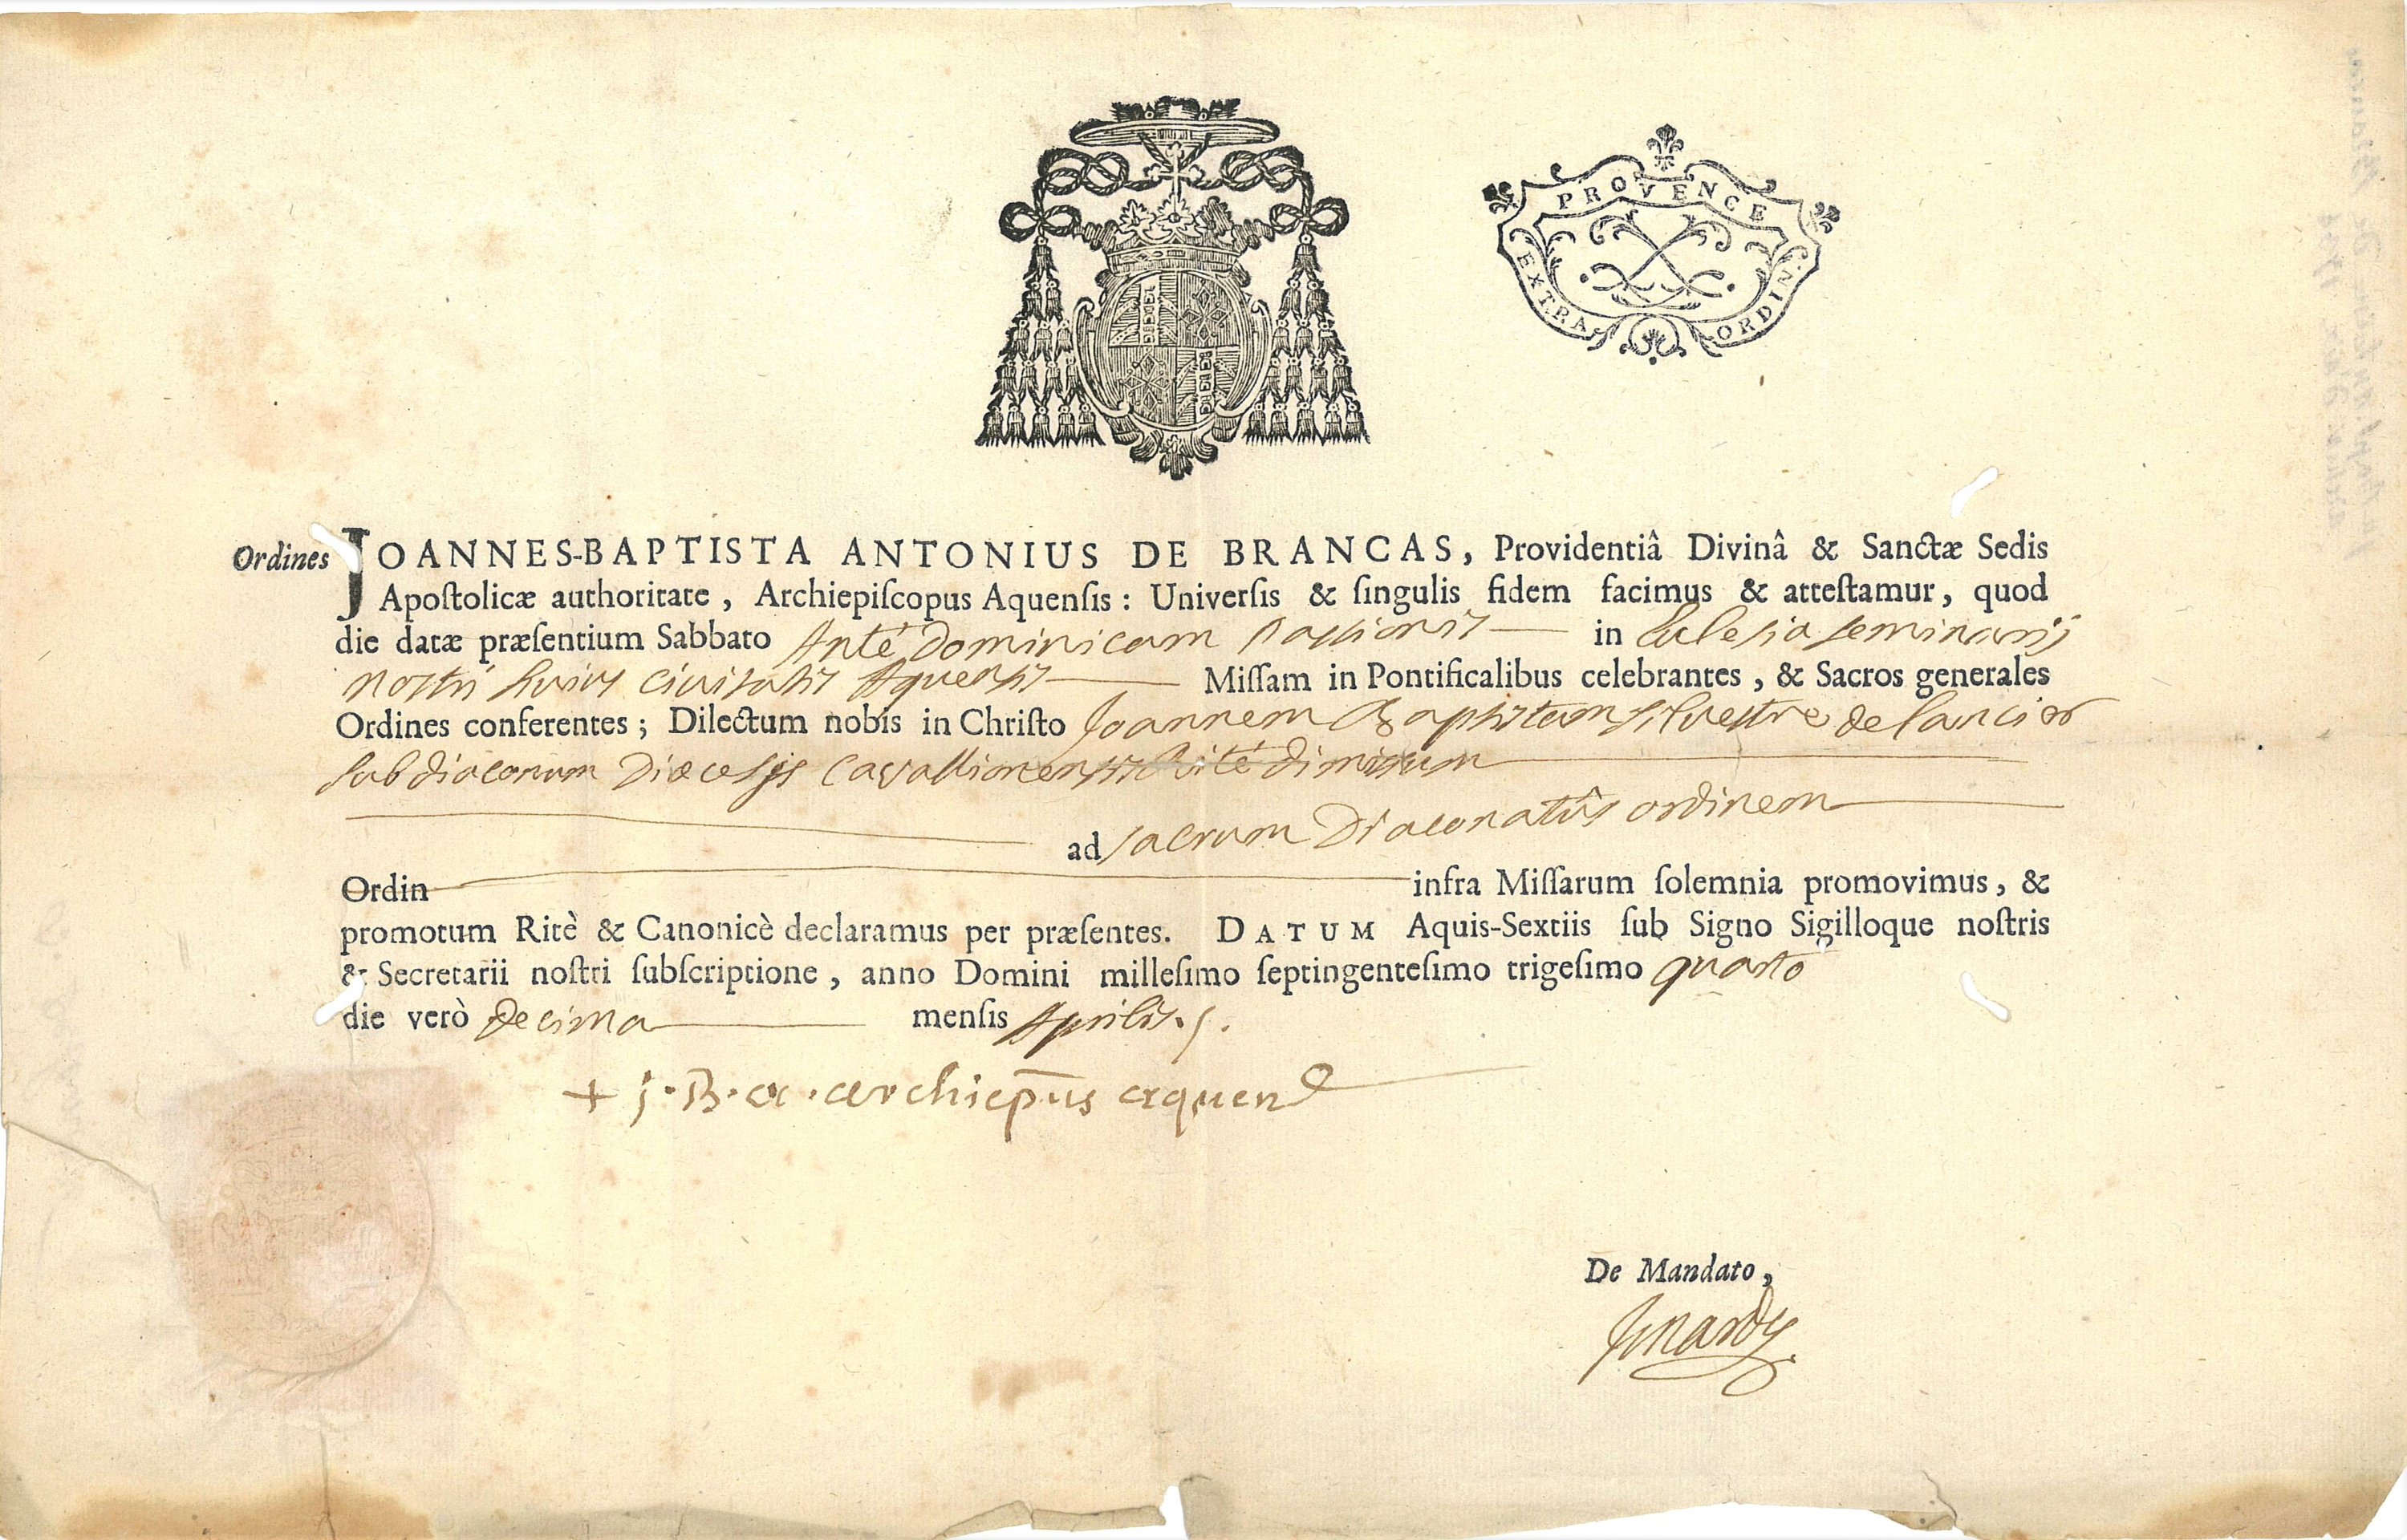 PROVENCE
EXTRA ORDIN.
Ordines JOANNES-BAPTISTA ANTONIUS DE BRANCAS, Providentiâ Divinâ & Sanctæ Sedis
Apoſtolicæ authoritate, Archiepiſcopus Aquenſis: Univerſis & ſingulis fidem facimus & atteſtamur, quod
die datæ præſentium Sabbato Antè Dominicam Passionis in Ecclesia seminarij
nostri huius civitatis Aquensis Miſſam in Pontificalibus celebrantes, & Sacros generales
Ordines conferentes; Dilectum nobis in Chriſto Joannem Baptistam silvestre de
subdiaconum Diœcesis Cavallionensis Rité dimissum
ad sacrum Diaconatûs ordinem
Ordin infra Miſſarum ſolemnia promovimus, &
promotum Ritè & Canonicè declaramus per præſentes. DATUM Aquis-Sextiis ſub Signo Sigilloque noſtris
& Secretarii noſtri ſubſcriptione, anno Domini milleſimo ſeptingenteſimo trigeſimo quarto
die verò decima menſis Aprilis.
+ j. B. a. archiep̄us aquens
De Mandato,